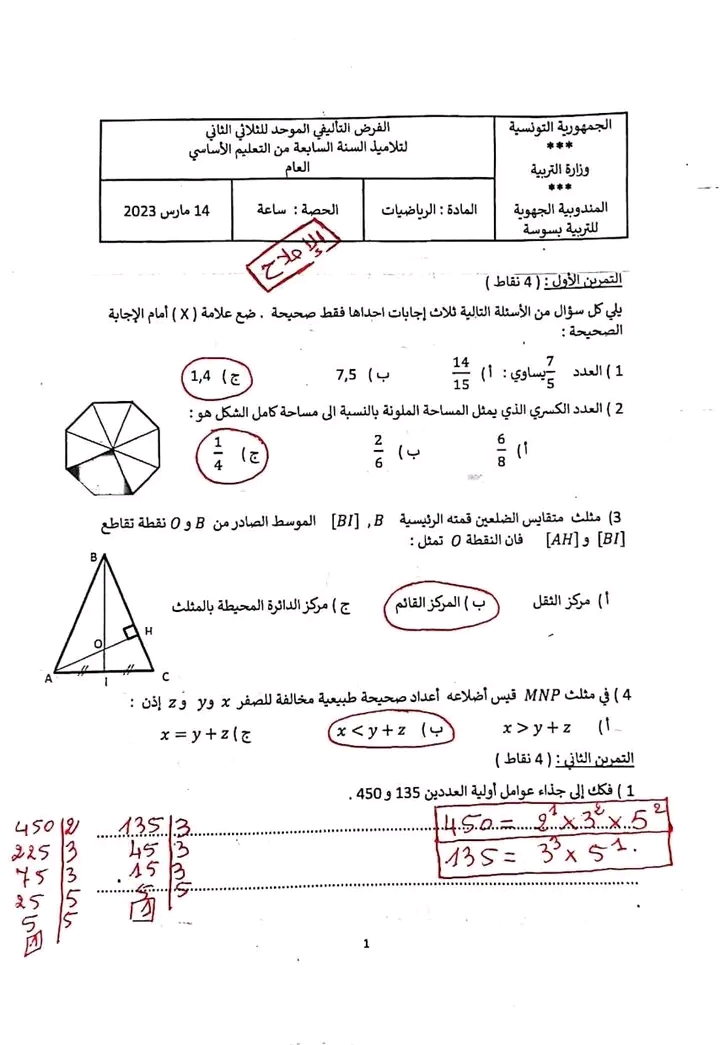 الجمهورية التونسية
***
وزارة التربية
***
المندوبية الجهوية
للتربية بسوسة
الفرض التأليفي الموحد للثلاثي الثاني
لتلاميذ السنة السابعة من التعليم الأساسي
العام
المادة : الرياضيات
الحصة : ساعة
14 مارس 2023
الإصلاح
التمرين الأول : ( 4 نقاط )
يلي كل سؤال من الأسئلة التالية ثلاث إجابات احداها فقط صحيحة . ضع علامة ( X ) أمام الإجابة
الصحيحة :
1 ) العدد 7/5 يساوي : أ) 14/15 ب) 7,5 ج) 1,4
2 ) العدد الكسري الذي يمثل المساحة الملونة بالنسبة الى مساحة كامل الشكل هو :
أ) 6/8 ب) 2/6 ج) 1/4
3) مثلث متقايس الضلعين قمته الرئيسية B , [BI] الموسط الصادر من B و O نقطة تقاطع
[BI] و [AH] فان النقطة O تمثل :
أ) مركز الثقل ب) المركز القائم ج) مركز الدائرة المحيطة بالمثلث
B
H
O
A
I
C
4 ) في مثلث MNP قيس أضلاعه أعداد صحيحة طبيعية مخالفة للصفر x و y و z إذن :
أ) x > y + z ب) x < y + z ج) x = y + z
التمرين الثاني : ( 4 نقاط )
1 ) فكك إلى جذاء عوامل أولية العددين 135 و 450 .
450 = 2¹ × 3² × 5²
135 = 3³ × 5¹.
135 | 3
45 | 3
15 | 3
5 | 5
1
450 | 2
225 | 3
75 | 3
25 | 5
5 | 5
1
1